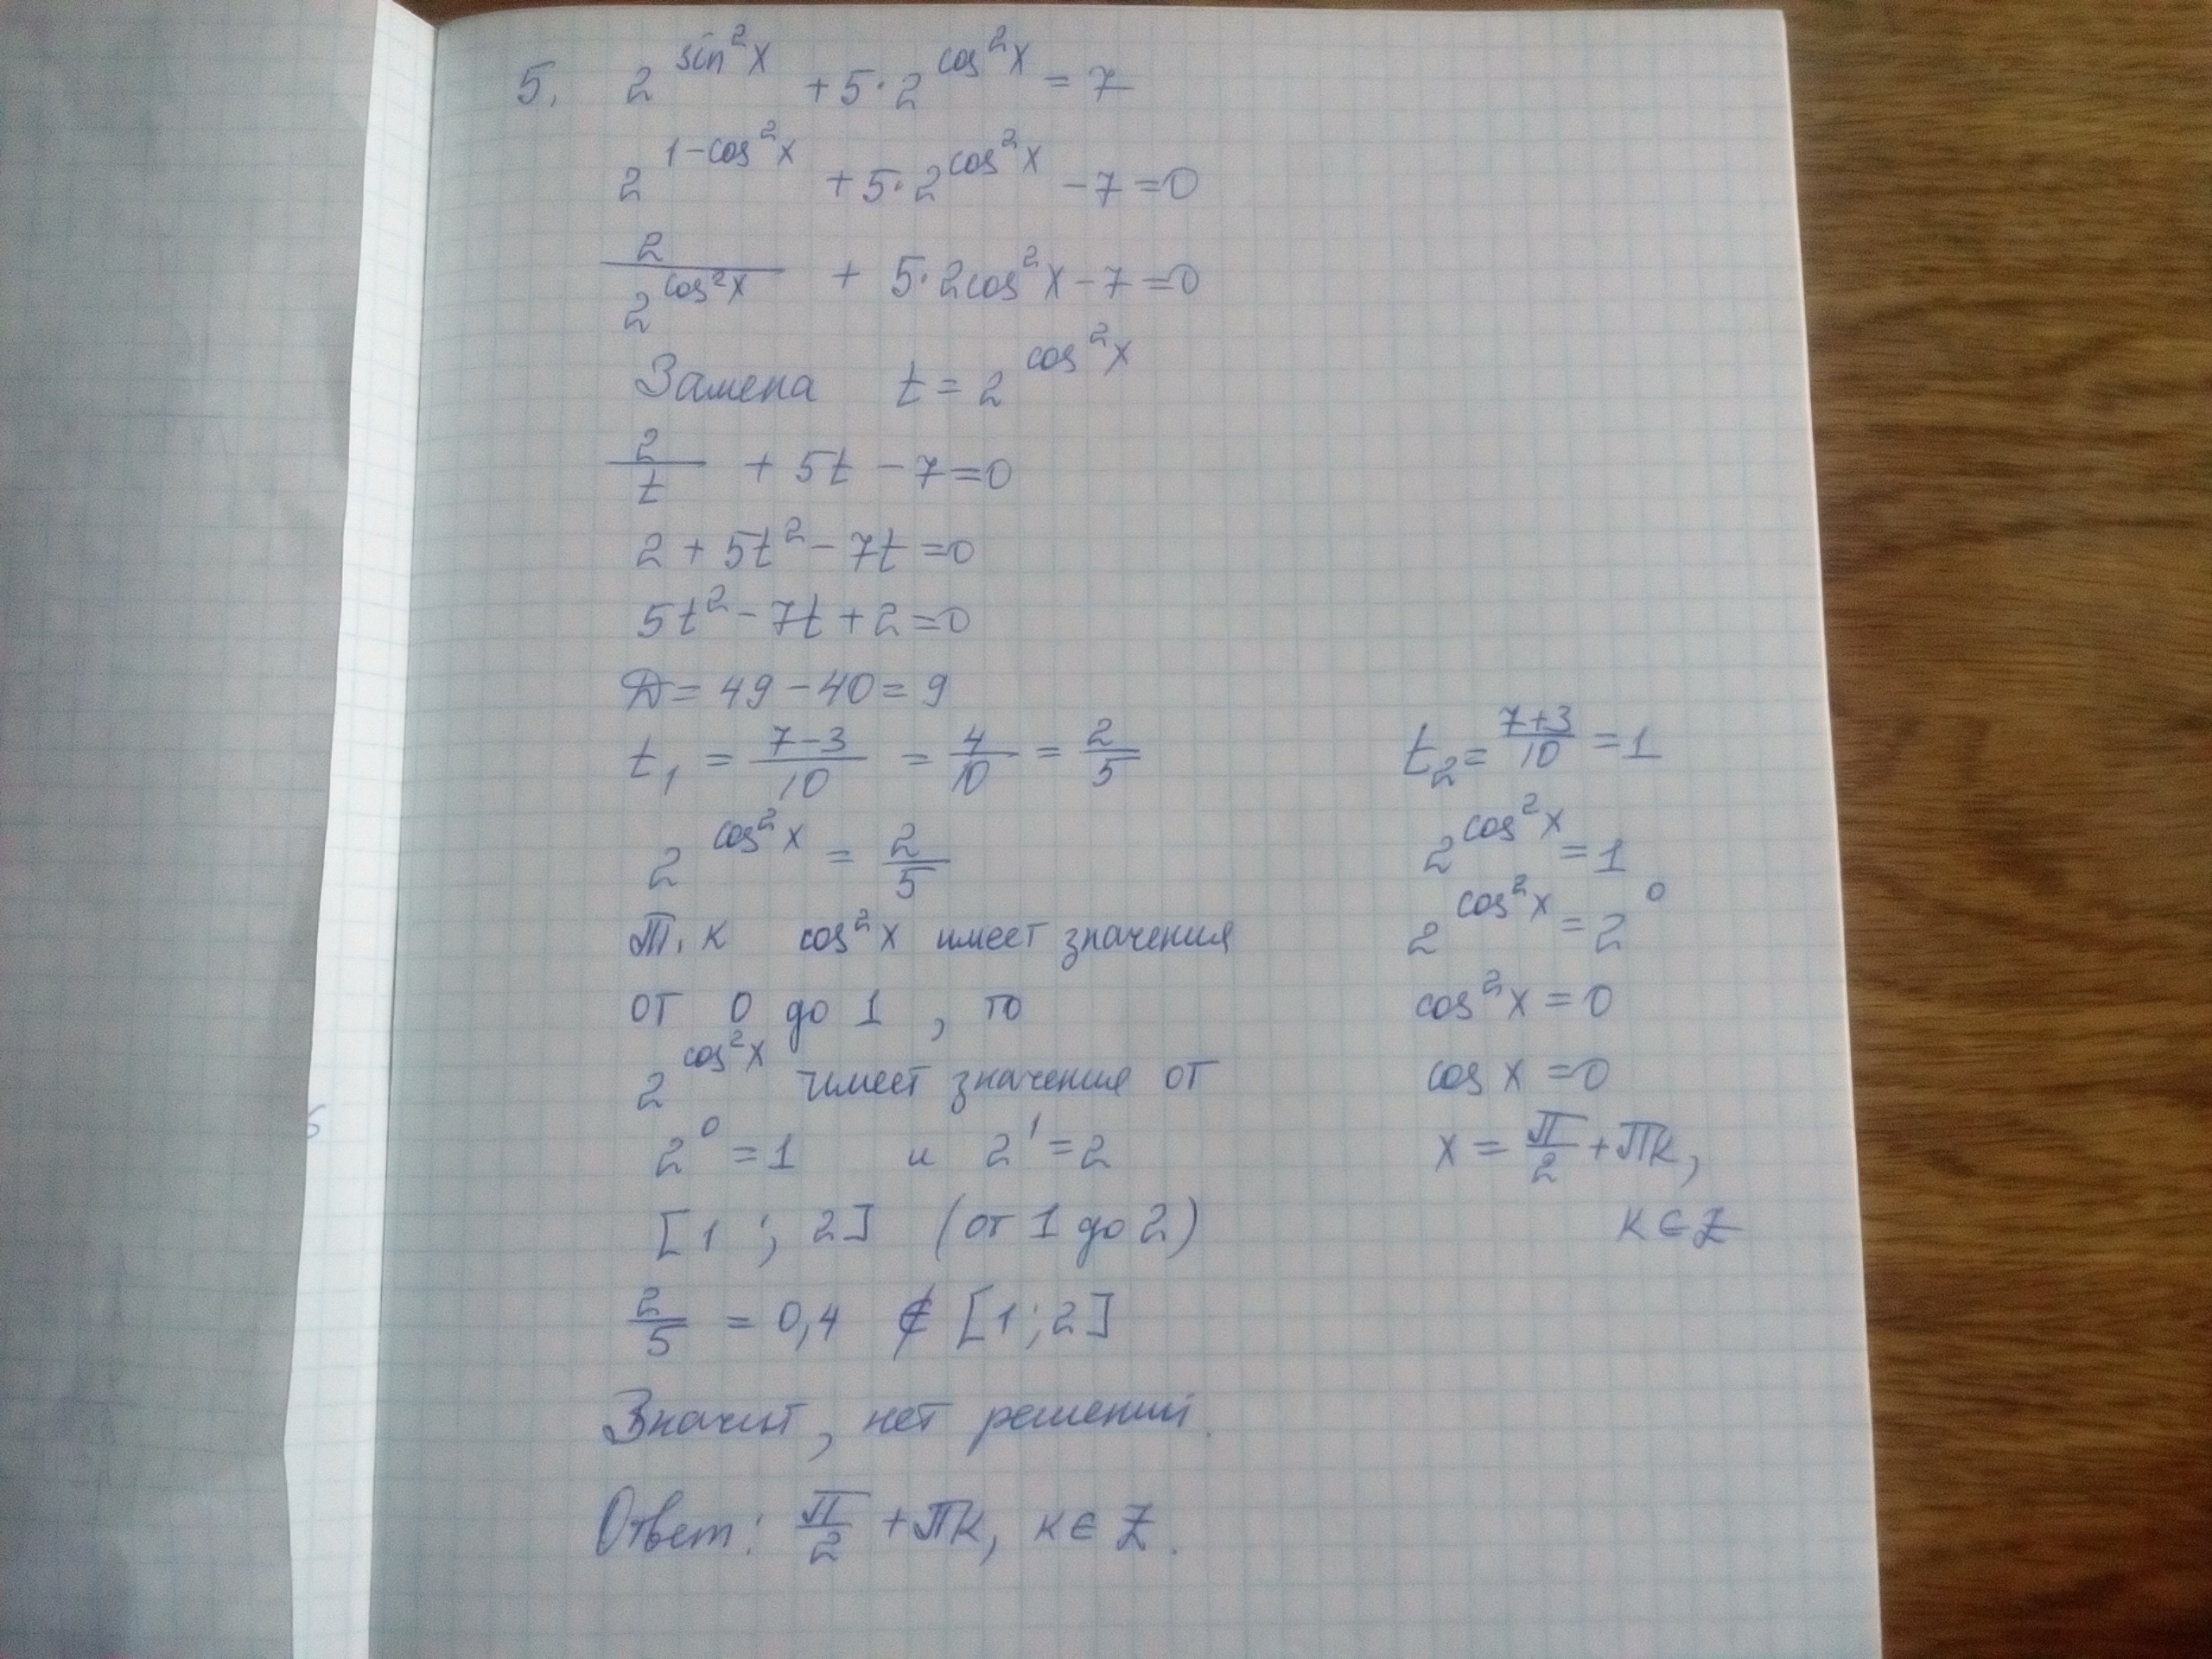 5. 2^{sin²x} + 5·2^{cos²x} = 7
2^{1-cos²x} + 5·2^{cos²x} - 7 = 0
\frac{2}{2^{cos²x}} + 5·2cos²x - 7 = 0
Замена t = 2^{cos²x}
\frac{2}{t} + 5t - 7 = 0
2 + 5t² - 7t = 0
5t² - 7t + 2 = 0
D = 49 - 40 = 9
t₁ = \frac{7-3}{10} = \frac{4}{10} = \frac{2}{5}
2^{cos²x} = \frac{2}{5}
Т.к cos²x имеет значения
от 0 до 1, то
2^{cos²x} имеет значения от
2⁰ = 1 и 2¹ = 2
[1; 2] (от 1 до 2)
\frac{2}{5} = 0,4 ∉ [1; 2]
Значит, нет решений.
t₂ = \frac{7+3}{10} = 1
2^{cos²x} = 1
2^{cos²x} = 2⁰
cos²x = 0
cos x = 0
x = \frac{π}{2} + πk,
k ∈ Z
Ответ: \frac{π}{2} + πk, k ∈ Z.